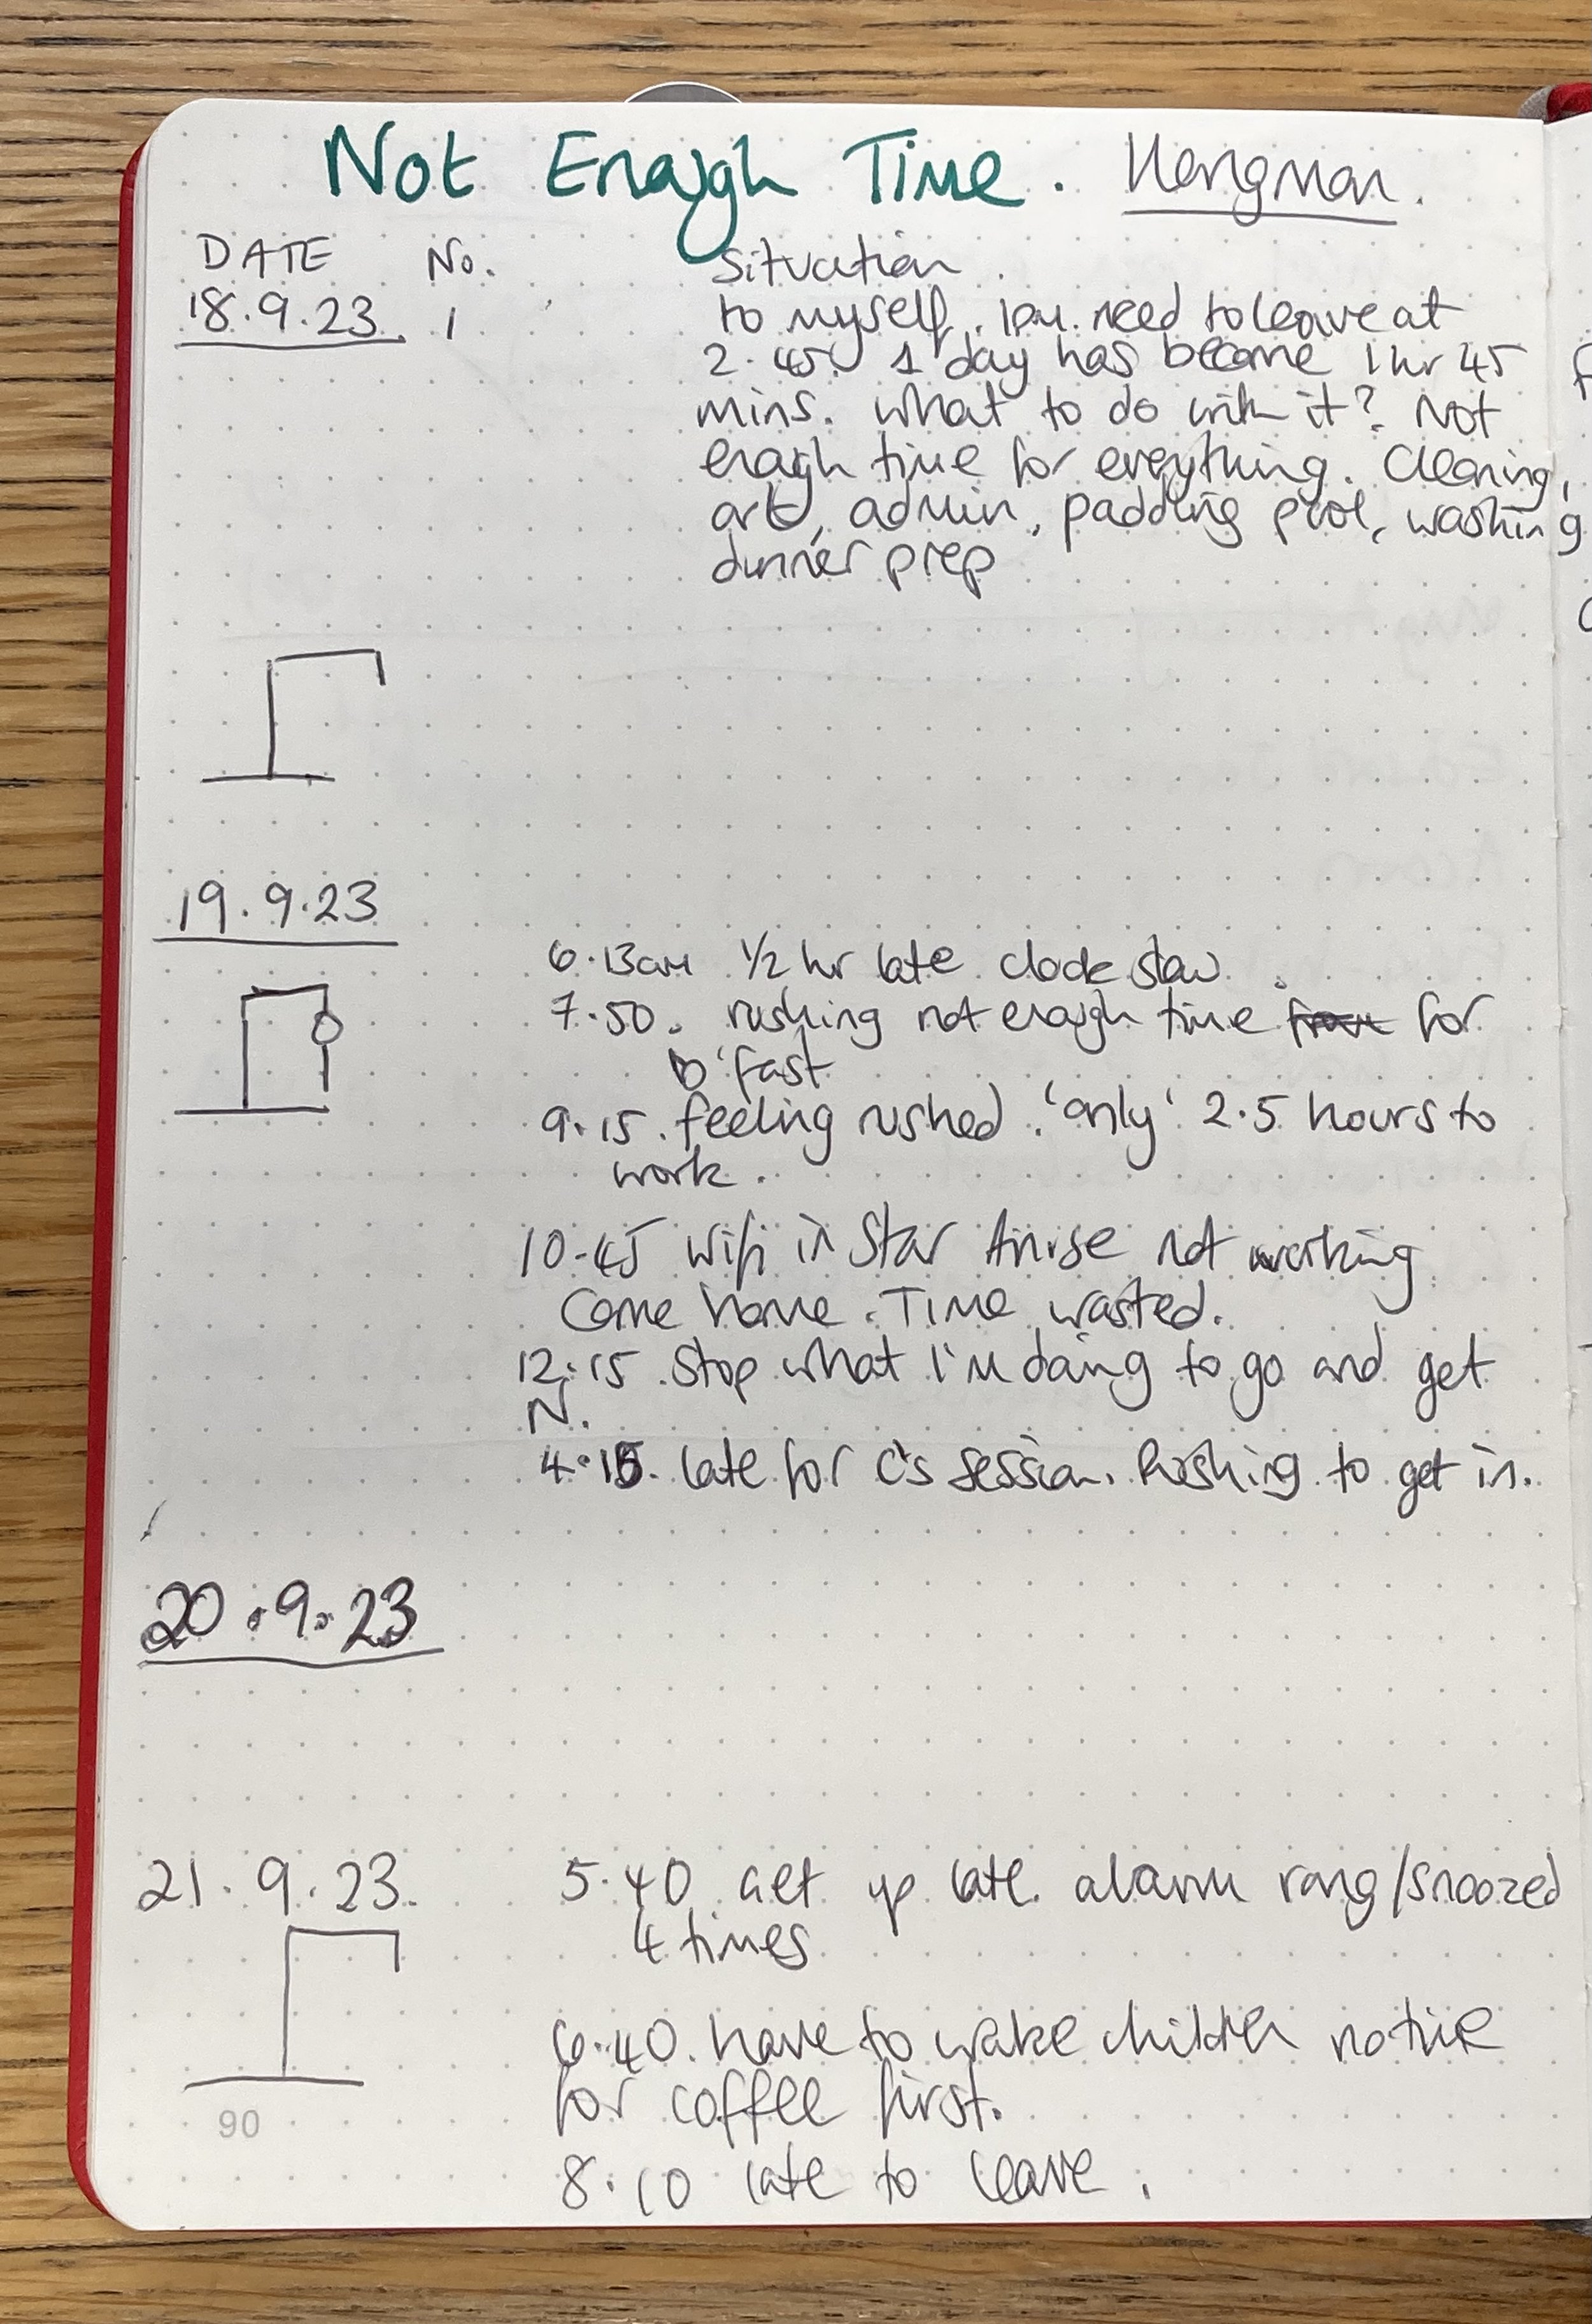 Not Enough Time. Hangman.
DATE No. Situation.
18.9.23. 1 to myself. 1pm. need to leave at
2.45. 1 day has become 1 hr 45
mins. What to do with it? Not
enough time for everything. Cleaning,
art, admin, paddling pool, washing
dinner prep
19.9.23
6.13am 1/2 hr late clock slow.
7.50. rushing not enough time from for
b'fast
9.15. feeling rushed. 'only' 2.5 hours to
work.
10.45 Wifi in Star Anise not working
Come home. Time wasted.
12.15. Stop what I'm doing to go and get
N.
4.15. late for C's session. Rushing to get in.
20.9.23
21.9.23. 5.40 Get up late. alarm rang/snoozed
4 times
6.40. have to wake children no time
for coffee first.
8.10 late to leave.
90